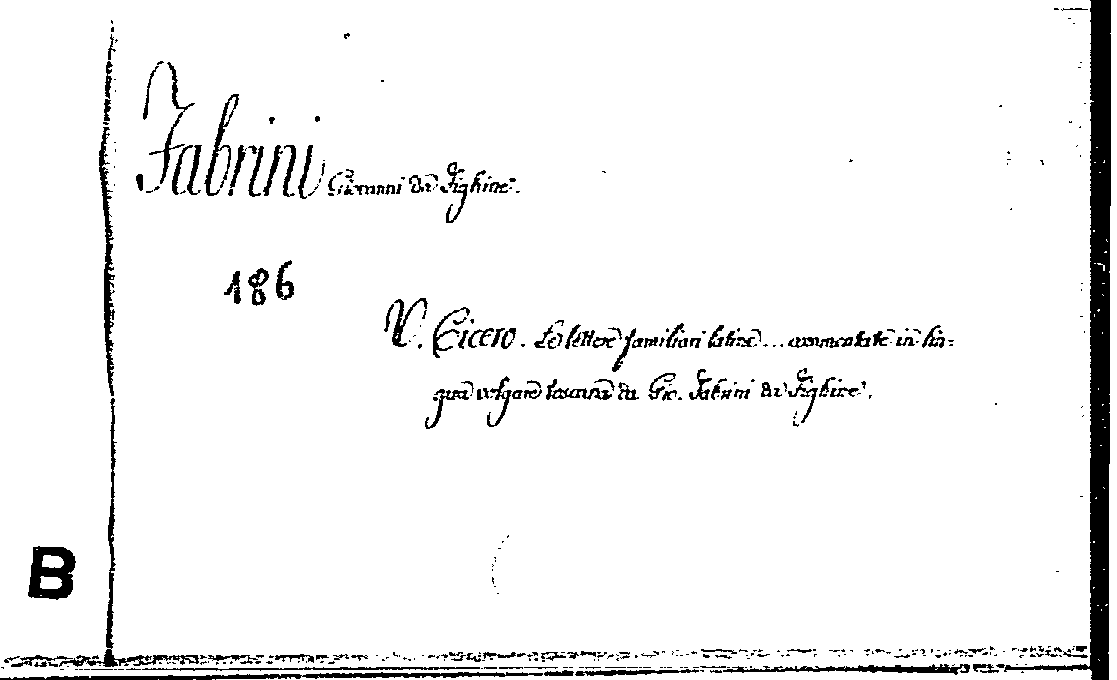 Fabrini Giovanni da Fighine.
186
V. Cicero. Le lettere familiari latine ... commentate in lin=
gua volgare toscana da Gio. Fabrini da Fighine.
B